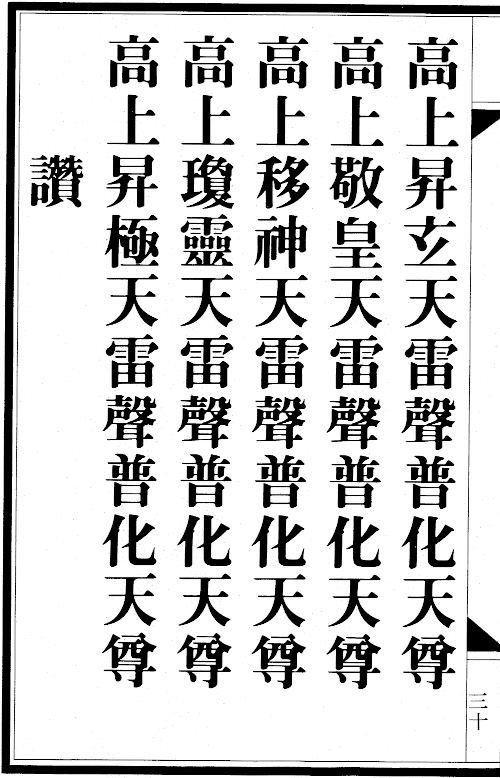 高上昇玄天雷聲普化天尊
高上敬皇天雷聲普化天尊
高上移神天雷聲普化天尊
高上瓊靈天雷聲普化天尊
高上昇極天雷聲普化天尊
讚
三十